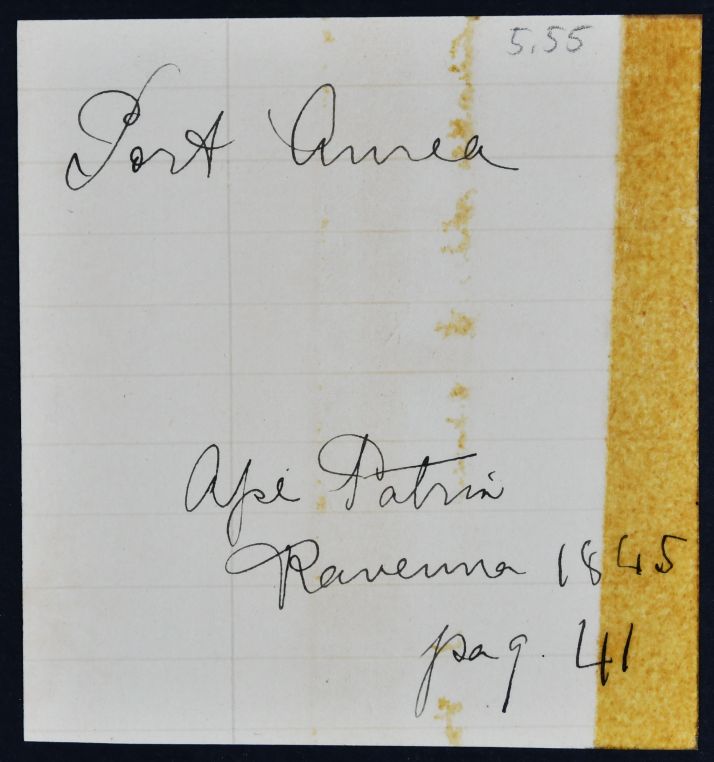 5.55
Port Aurea
Ape Patrin
Ravenna 1845
pag. 41